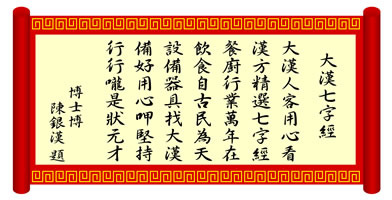 大漢七字經
大漢人客用心看
漢方精選七字經
餐廚行業萬年在
飲食自古民為天
設備器具找大漢
備好用心呷堅持
行行嚨是狀元才
博士博
陳銀漢 題